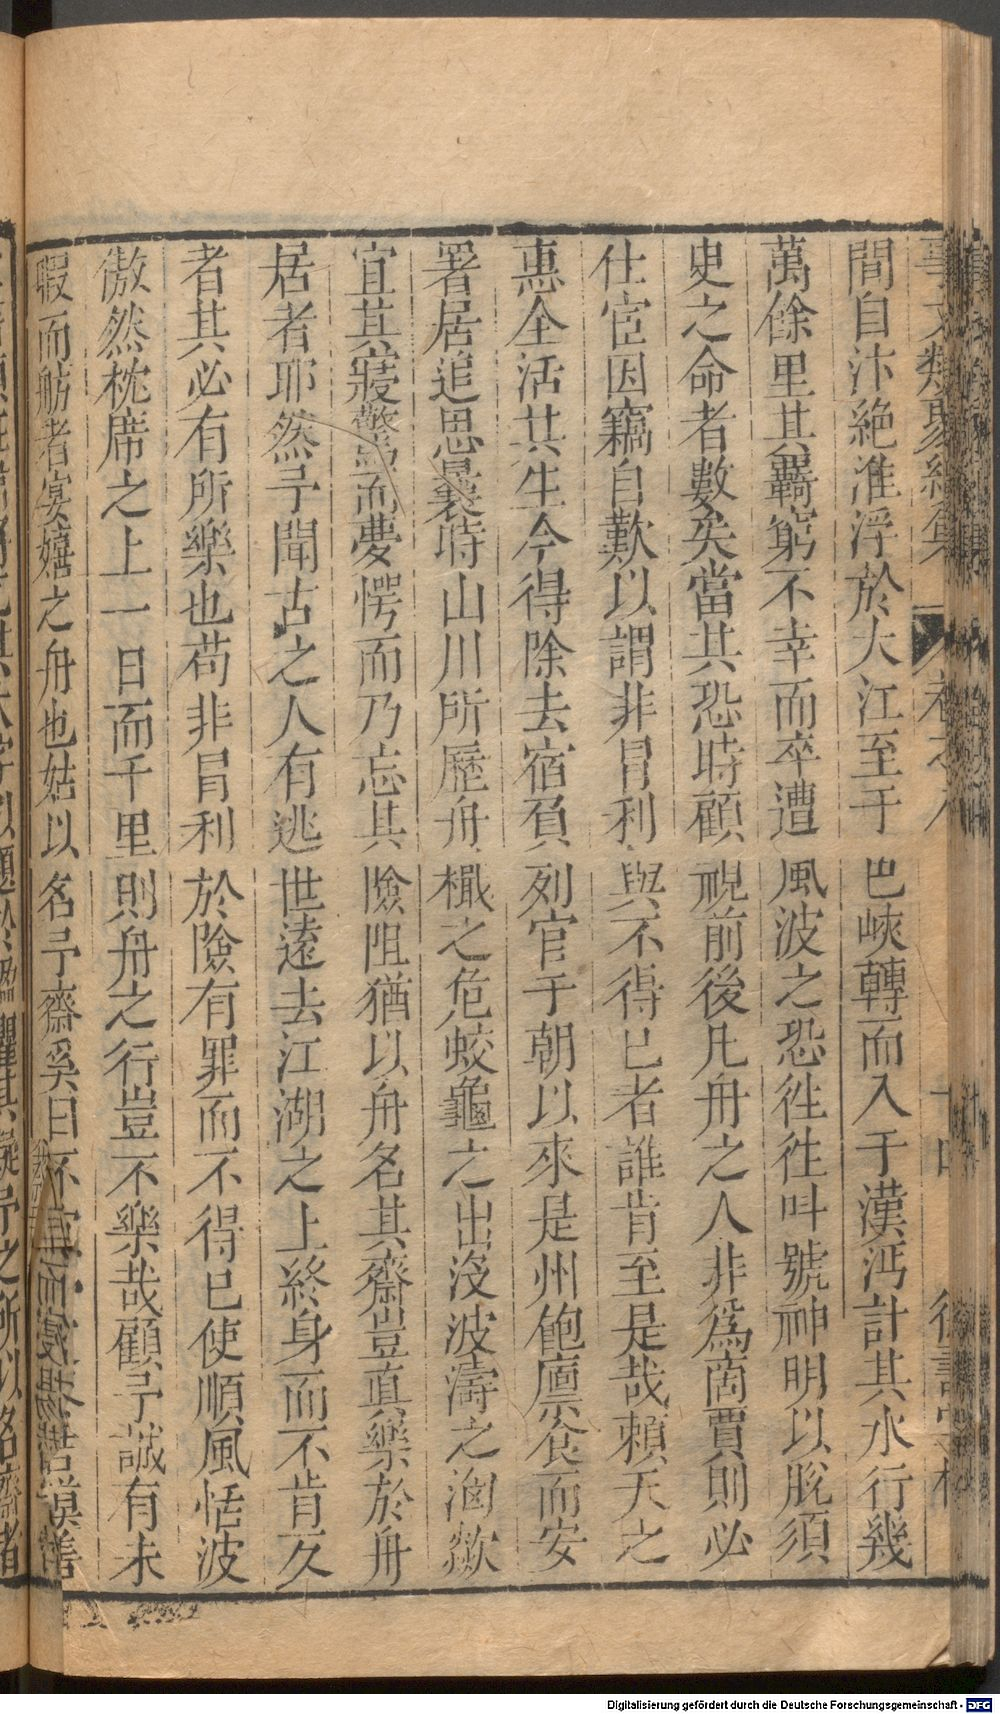 事文類聚續集 卷之八 十四
間自汴絶淮浮於大江至于巴峽轉而入于漢沔計其水行幾
萬餘里其羇窮不幸而卒遭風波之恐徃徃叫號神明以脫須
㕜之命者數矣當其恐時顧視前後凡舟之人非爲啇賈則必
仕宦因竊自歎以謂非冐利與不得已者誰肯至是哉頼天之
惠全活其生今得除去宿負列官于朝以來是州飽廪食而安
署居追思曩時山川所歷舟檝之危蛟龜之出沒波濤之洶欻
宜其寢驚而夢愕而乃忘其險阻猶以舟名其齋豈真樂於舟
居者耶然予聞古之人有逃世遠去江湖之上終身而不肯久
者其必有所樂也苟非冐利於險有罪而不得已使順風恬波
傲然枕席之上一日而千里則舟之行豈不樂哉顧予誠有未
暇而舫者宴嬉之舟也姑以名予齋奚曰不宜而
Digitalisierung gefördert durch die Deutsche Forschungsgemeinschaft - DFG